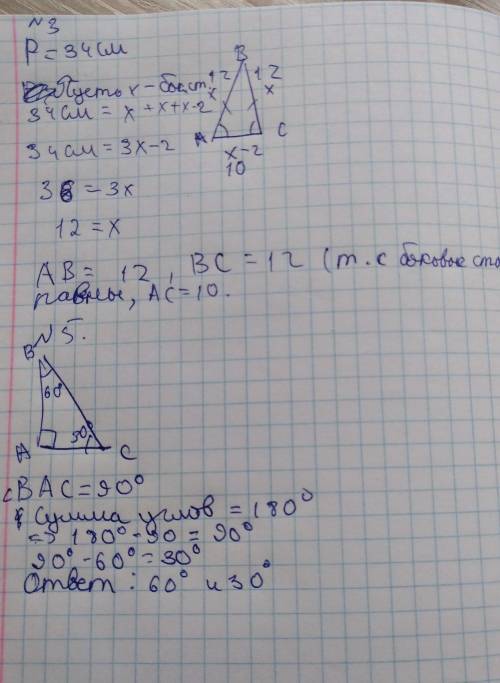 N3
P=34см
Пусть x - бок.ст.
34см = x+x+x-2
34см = 3x-2
36 = 3x
12 = x
B
12
x
12
x
A
C
x-2
10
AB = 12, BC = 12 (т.к боковые сто
равны, AC=10.
N5.
B
60°
A
30°
C
<BAC=90°
Сумма углов = 180°
=> 180°-90 = 90°
90°-60°=30°
Ответ: 60° и 30°